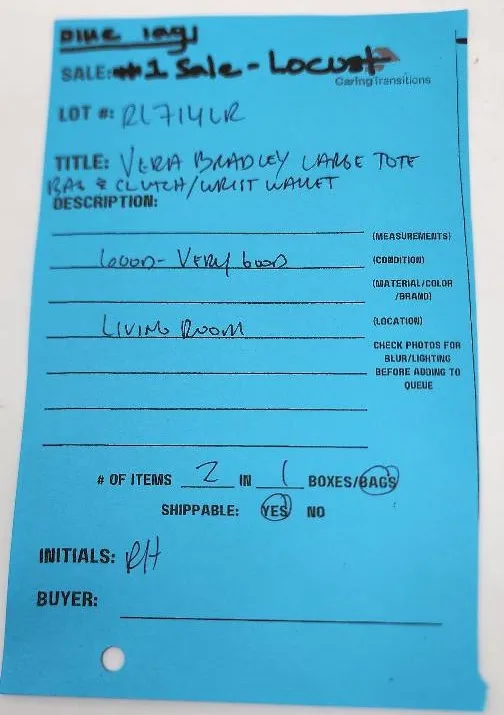 Blue Tags
SALE: #1 Sale - Locust
Caring Transitions
LOT #: RL714LR
TITLE: VERA BRADLEY LARGE TOTE
BAG & CLUTCH/WRIST WALLET
DESCRIPTION:
(MEASUREMENTS)
GOOD - VERY GOOD (CONDITION)
(MATERIAL/COLOR
/BRAND)
LIVING ROOM (LOCATION)
CHECK PHOTOS FOR
BLUR/LIGHTING
BEFORE ADDING TO
QUEUE
# OF ITEMS 2 IN 1 BOXES/BAGS
SHIPPABLE: YES NO
INITIALS: RH
BUYER: